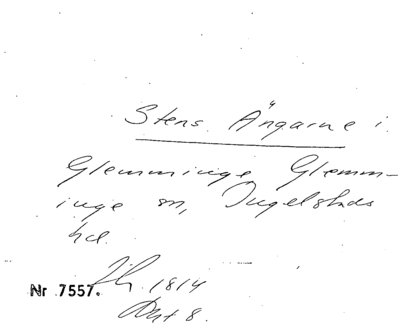 Stens. Ängarne i.
Glemminge Glemm-
inge sn, Ingelstads
hd.
1814
Nr 7557.
8.